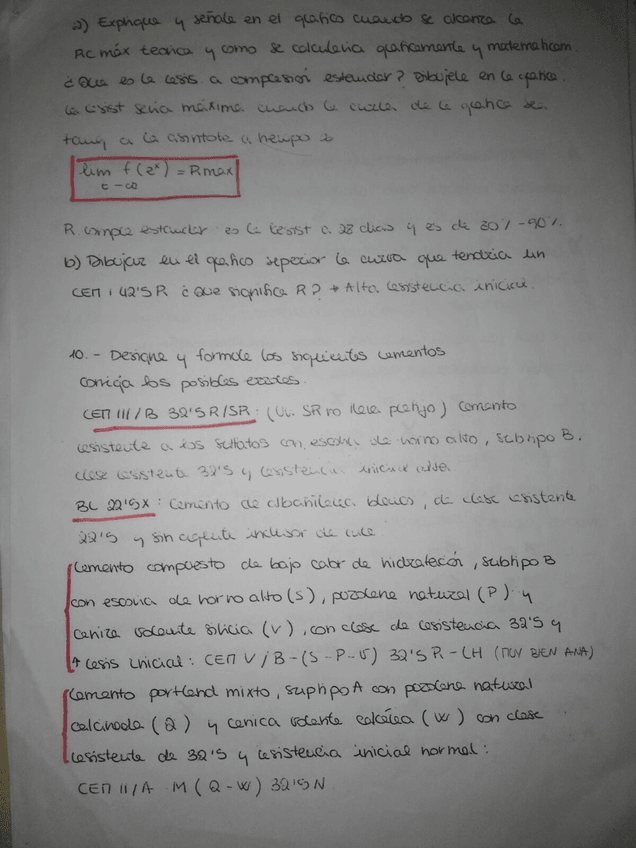 a) Explique y señale en el grafico cuando se alcanza la
Rc máx teorica y como se calcularia graficamente y matematicam.
¿Que es la resis. a compresión estandar? Dibujele en la grafica.
la resist seria máxima cuando la curva de la grafica sea
tang a la asintota a tiempo ∞
lim f(2ˣ) = Rmax
t→∞
R. compre estandar es la resist a 28 dias y es de 80% - 90%.
b) Dibujar en el grafico superior la curva que tendria un
CEM I 42'5 R ¿Que significa R? → Alta resistencia inicial.
10.- Designe y formule los siguientes cementos
corrija los posibles errores.
CEM III/B 32'5 R/SR: (UN. SR no lleva prefijo) Cemento
resistente a los sulfatos con escoria de horno alto, subtipo B.
clase resistente 32'5 y resistencia inicial alta.
BL 22'5X: Cemento de albañileria blanco, de clase resistente
22'5 y sin agente inclusor de aire
Cemento compuesto de bajo calor de hidratación, subtipo B
con escoria de horno alto (S), puzolana natural (P) y
ceniza volante silicia (V), con clase de resistencia 32'5 y
↑ resis inicial: CEM V/B-(S-P-V) 32'5 R-LH (MUY BIEN ANA)
Cemento portland mixto, suptipo A con puzolana natural
calcinada (Q) y ceniza volante calcárea (W) con clase
resistente de 32'5 y resistencia inicial normal:
CEM II/A-M (Q-W) 32'5 N